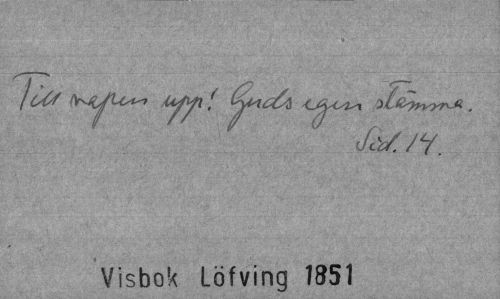 Till vapen upp! Guds egen stämma.
Sid. 14.
Visbok Löfving 1851